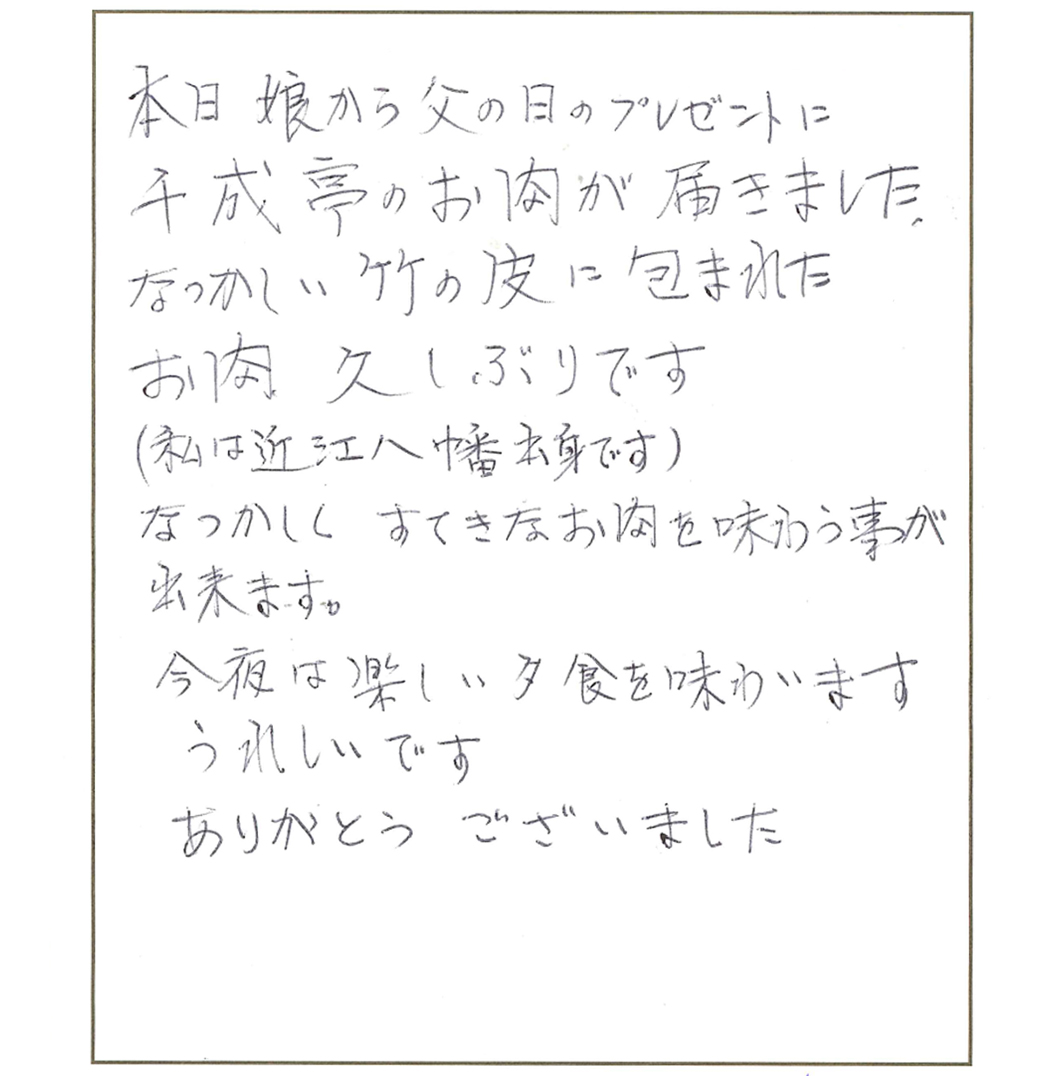 本日 娘から父の日のプレゼントに
千成亭のお肉が届きました、
なつかしい竹の皮に包まれた
お肉 久しぶりです
(私は近江八幡出身です)
なつかしく すてきなお肉を味わう事が
出来ます。
今夜は楽しい夕食を味わいます
うれしいです
ありがとう ございました